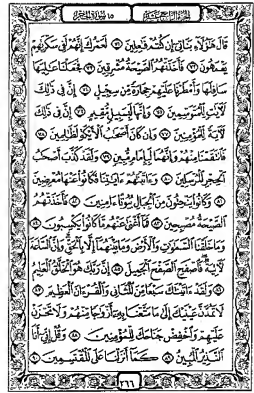 الجزء الرابع عشر ١٥ سورة الحجر
قَالَ هَٰٓؤُلَآءِ بَنَاتِىٓ إِن كُنتُمْ فَٰعِلِينَ ٧١ لَعَمْرُكَ إِنَّهُمْ لَفِى سَكْرَتِهِمْ
يَعْمَهُونَ ٧٢ فَأَخَذَتْهُمُ ٱلصَّيْحَةُ مُشْرِقِينَ ٧٣ فَجَعَلْنَا عَٰلِيَهَا
سَافِلَهَا وَأَمْطَرْنَا عَلَيْهِمْ حِجَارَةً مِّن سِجِّيلٍ ٧٤ إِنَّ فِى ذَٰلِكَ
لَءَايَٰتٍ لِّلْمُتَوَسِّمِينَ ٧٥ وَإِنَّهَا لَبِسَبِيلٍ مُّقِيمٍ ٧٦ إِنَّ فِى ذَٰلِكَ
لَءَايَةً لِّلْمُؤْمِنِينَ ٧٧ وَإِن كَانَ أَصْحَٰبُ ٱلْأَيْكَةِ لَظَٰلِمِينَ ٧٨
فَٱنتَقَمْنَا مِنْهُمْ وَإِنَّهُمَا لَبِإِمَامٍ مُّبِينٍ ٧٩ وَلَقَدْ كَذَّبَ أَصْحَٰبُ
ٱلْحِجْرِ ٱلْمُرْسَلِينَ ٨٠ وَءَاتَيْنَٰهُمْ ءَايَٰتِنَا فَكَانُوا۟ عَنْهَا مُعْرِضِينَ ٨١
وَكَانُوا۟ يَنْحِتُونَ مِنَ ٱلْجِبَالِ بُيُوتًا ءَامِنِينَ ٨٢ فَأَخَذَتْهُمُ
ٱلصَّيْحَةُ مُصْبِحِينَ ٨٣ فَمَآ أَغْنَىٰ عَنْهُم مَّا كَانُوا۟ يَكْسِبُونَ ٨٤
وَمَا خَلَقْنَا ٱلسَّمَٰوَٰتِ وَٱلْأَرْضَ وَمَا بَيْنَهُمَآ إِلَّا بِٱلْحَقِّ وَإِنَّ ٱلسَّاعَةَ
لَءَاتِيَةٌ فَٱصْفَحِ ٱلصَّفْحَ ٱلْجَمِيلَ ٨٥ إِنَّ رَبَّكَ هُوَ ٱلْخَلَّٰقُ ٱلْعَلِيمُ
٨٦ وَلَقَدْ ءَاتَيْنَٰكَ سَبْعًا مِّنَ ٱلْمَثَانِى وَٱلْقُرْءَانَ ٱلْعَظِيمَ ٨٧
لَا تَمُدَّنَّ عَيْنَيْكَ إِلَىٰ مَا مَتَّعْنَا بِهِۦٓ أَزْوَٰجًا مِّنْهُمْ وَلَا تَحْزَنْ
عَلَيْهِمْ وَٱخْفِضْ جَنَاحَكَ لِلْمُؤْمِنِينَ ٨٨ وَقُلْ إِنِّىٓ أَنَا
ٱلنَّذِيرُ ٱلْمُبِينُ ٨٩ كَمَآ أَنزَلْنَا عَلَى ٱلْمُقْتَسِمِينَ ٩٠
٢٦٦